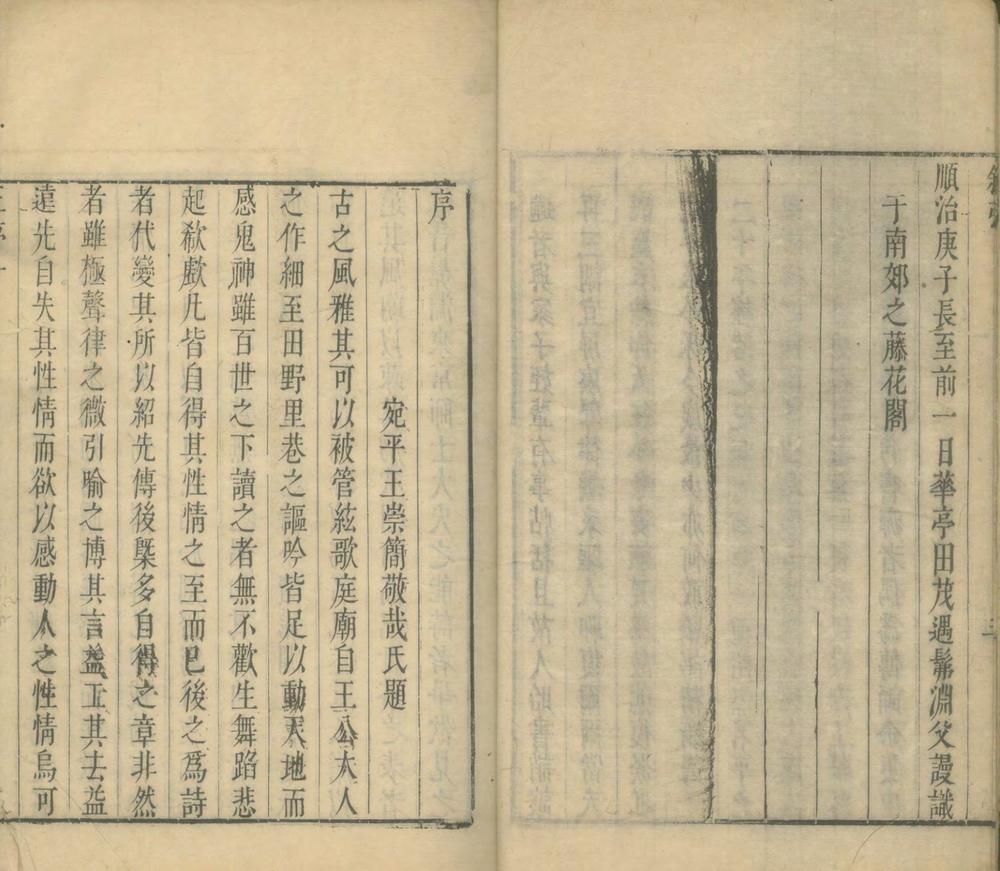 順治庚子長至前一日華亭田茂遇髴淵父謾識
于南郊之藤花閣
序
宛平王崇簡敬哉氏題
古之風雅其可以被管絃歌庭廟自王公大人
之作細至田野里巷之謳吟皆足以動天地而
感鬼神雖百世之下讀之者無不歡生舞蹈悲
起欷歔凡皆自得其性情之至而巳後之爲詩
者代變其所以紹先傳後槩多自得之章非然
者雖極聲律之微引喻之博其言益工其去益
遠先自失其性情而欲以感動人之性情烏可